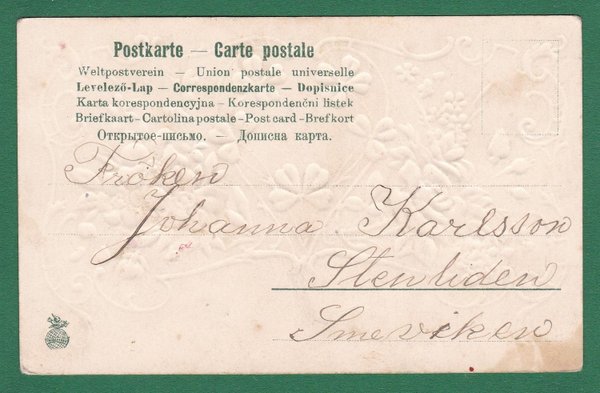 Postkarte — Carte postale
Weltpostverein — Union postale universelle
Levelező-Lap — Correspondenzkarte — Dopisnice
Karta korespondencyjna – Korespondenční listek
Briefkaart – Cartolina postale – Post card – Brefkort
Открытое-письмо. — Дописна карта.
Fröken
Johanna Karlsson
Stenliden
Smeviken